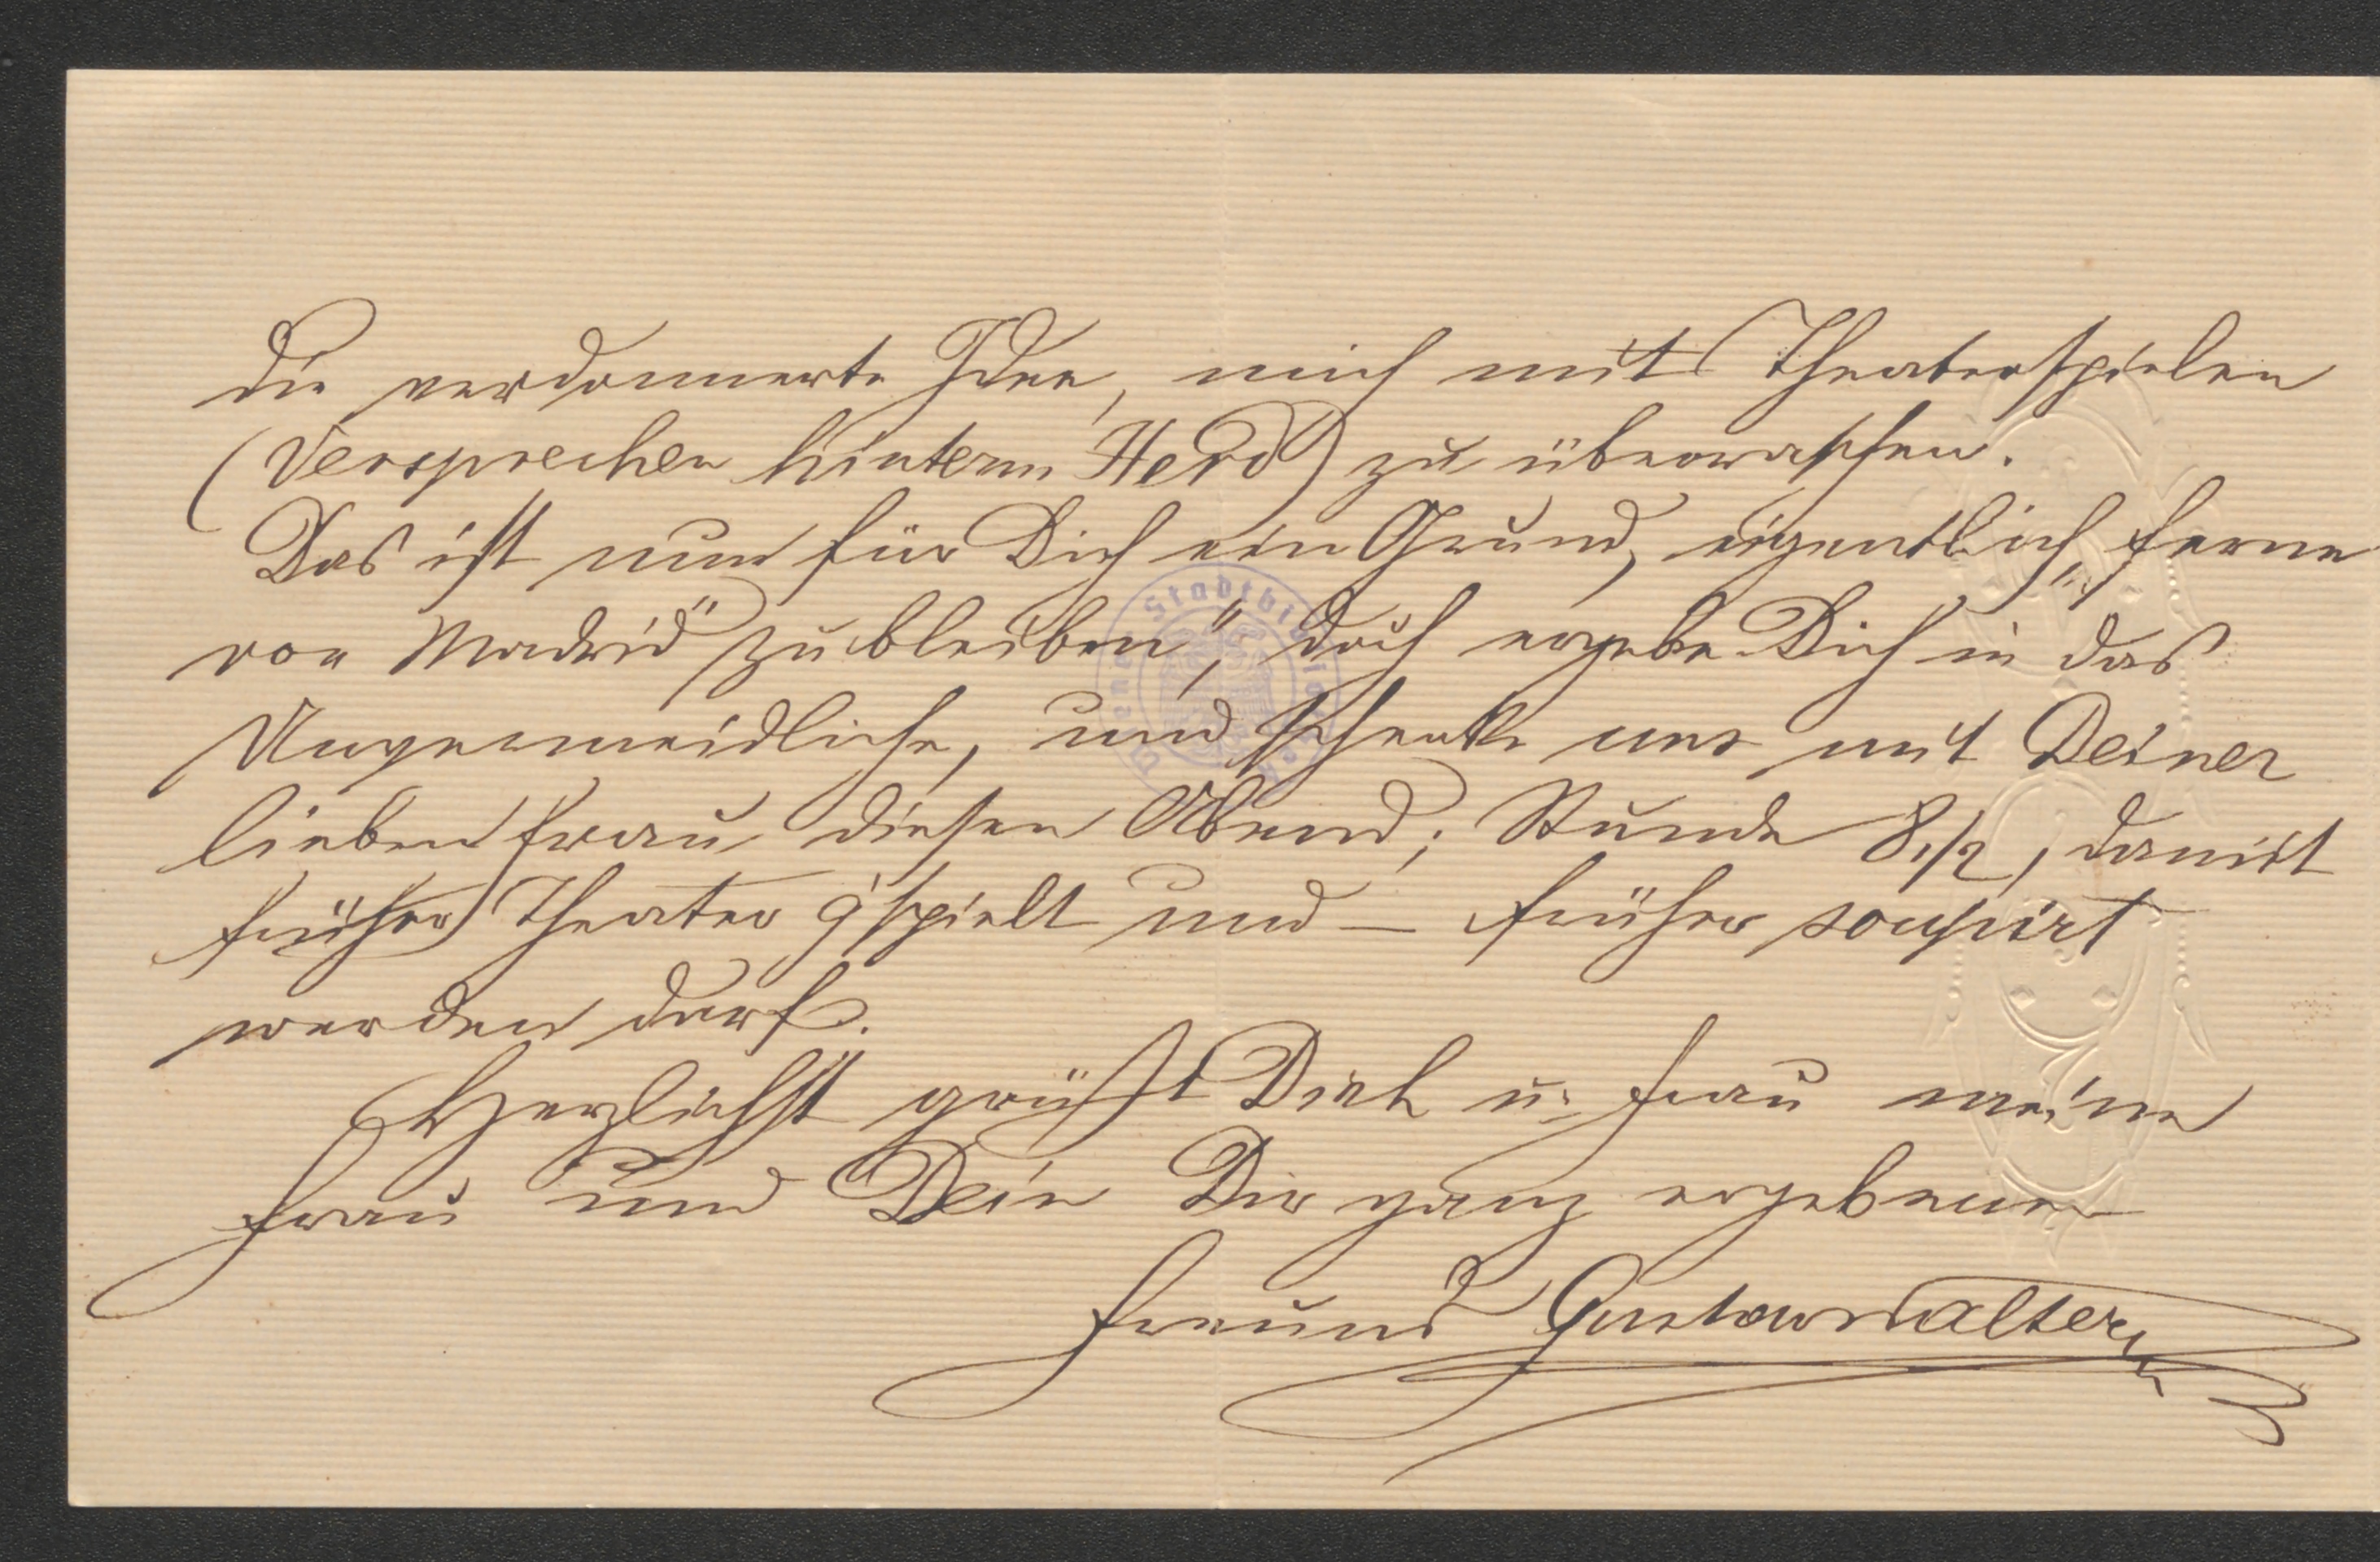 die verdonnerte Idee, mich mit Theaterspielen
(Versprechen hinterm Herd) zu überraschen.
Das ist nun für Dich ein Grund, eigentlich „ferne
von Madrid" zu bleiben", doch ergebe Dich in das
Unvermeidliche, und schenke uns mit Deiner
lieben Frau diesen Abend; Stunde 8 1/2, damit
früher Theater g'spielt und — früher soupirt
werden darf.
Herzlichst grüßt Dich u. Frau meine
Frau und Dein Dir ganz ergebener
Freund Gustav Walter